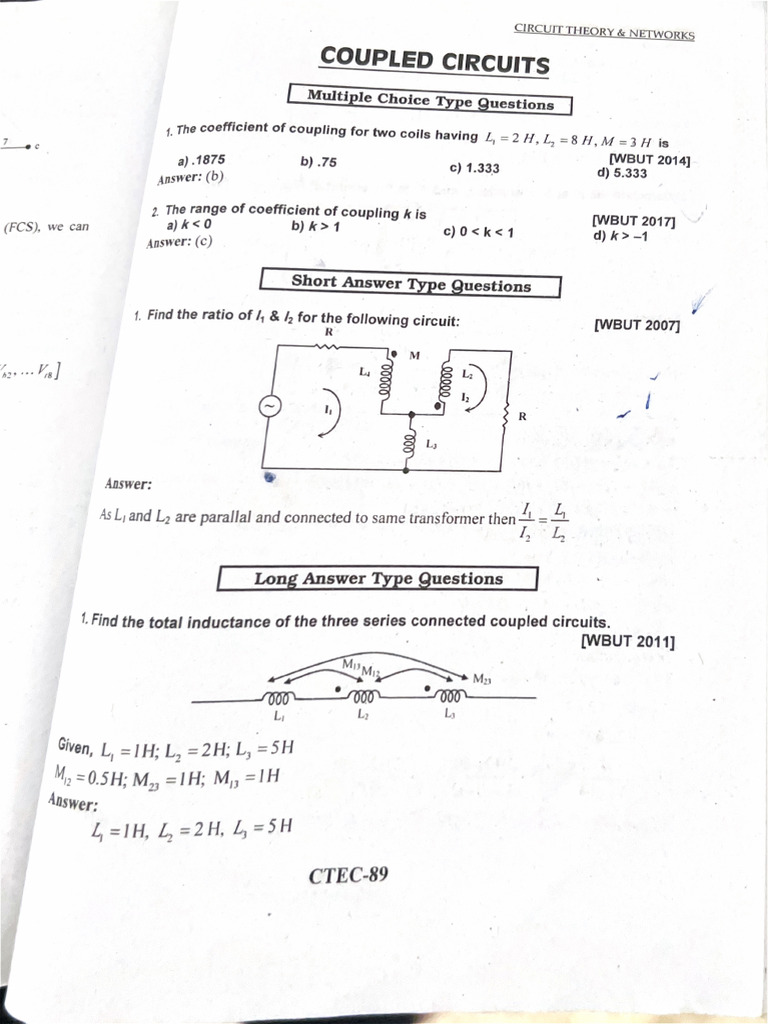 CIRCUIT THEORY & NETWORKS
COUPLED CIRCUITS
Multiple Choice Type Questions
1. The coefficient of coupling for two coils having L₁ = 2 H, L₂ = 8 H, M = 3 H is
[WBUT 2014]
a) .1875 b) .75 c) 1.333 d) 5.333
Answer: (b)
2. The range of coefficient of coupling k is
[WBUT 2017]
a) k < 0 b) k > 1 c) 0 < k < 1 d) k > –1
Answer: (c)
Short Answer Type Questions
1. Find the ratio of I₁ & I₂ for the following circuit: [WBUT 2007]
R
M
L₂
I₁
I₂
L₃
R
Answer:
As L₁ and L₂ are parallal and connected to same transformer then I₁/I₂ = L₁/L₂
Long Answer Type Questions
1. Find the total inductance of the three series connected coupled circuits.
[WBUT 2011]
M₁₃ M₁₂ M₂₃
L₁ L₂ L₃
Given, L₁ = 1H; L₂ = 2H; L₃ = 5H
M₁₂ = 0.5H; M₂₃ = 1H; M₁₃ = 1H
Answer:
L₁ = 1H, L₂ = 2H, L₃ = 5H
CTEC-89
7
c
(FCS), we can